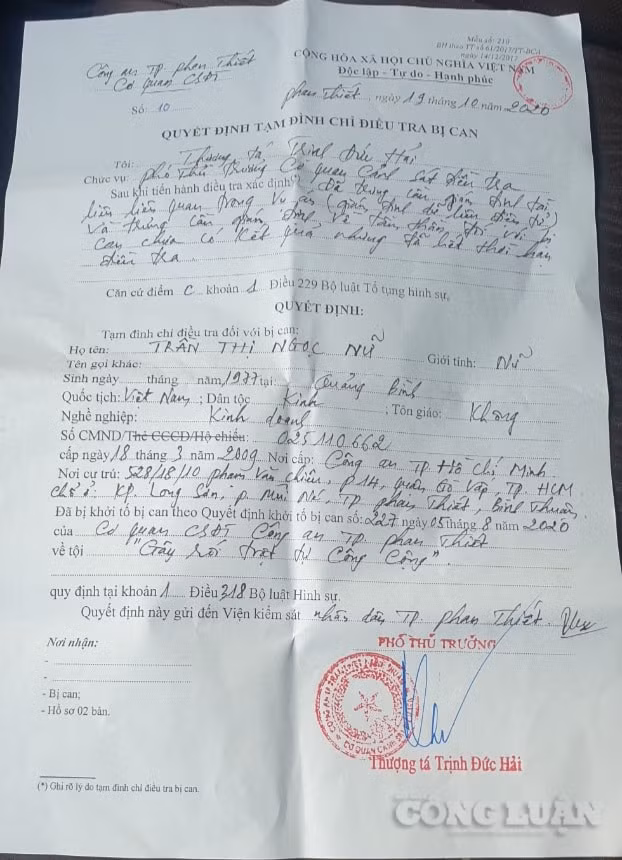 Mẫu số: 210
BH theo TT số 61/2017/TT-BCA
ngày 14/12/2017
Công an TP. Phan Thiết
Cơ quan CSĐT
CỘNG HÒA XÃ HỘI CHỦ NGHĨA VIỆT NAM
Độc lập - Tự do - Hạnh phúc
Số: 10
Phan Thiết, ngày 19 tháng 10 năm 2020
QUYẾT ĐỊNH TẠM ĐÌNH CHỈ ĐIỀU TRA BỊ CAN
Tôi: Thượng tá, Trịnh Đức Hải
Chức vụ: Phó Thủ trưởng Cơ quan Cảnh sát điều tra
Sau khi tiến hành điều tra xác định(*): Đã trưng cầu giám định tài
liệu liên quan trong vụ án (giám định dữ liệu điện tử)
và trưng cầu giám định về tâm thần đối với bị
can chưa có kết quả nhưng đã hết thời hạn
điều tra
Căn cứ điểm c khoản 1 Điều 229 Bộ luật Tố tụng hình sự,
QUYẾT ĐỊNH:
Tạm đình chỉ điều tra đối với bị can:
Họ tên: TRẦN THỊ NGỌC NỮ Giới tính: Nữ
Tên gọi khác:
Sinh ngày tháng năm 1977 tại: Quảng Bình
Quốc tịch: Việt Nam; Dân tộc: Kinh; Tôn giáo: Không
Nghề nghiệp: Kinh doanh
Số CMND/Thẻ CCCD/Hộ chiếu: 025110662
cấp ngày 18 tháng 3 năm 2009 Nơi cấp: Công an TP. Hồ Chí Minh
Nơi cư trú: 528/18/10 Phạm Văn Chiêu, P14, quận Gò Vấp, TP. HCM
Chỗ ở: KP. Long Sơn, P. Mũi Né, TP. Phan Thiết, Bình Thuận
Đã bị khởi tố bị can theo Quyết định khởi tố bị can số: 227 ngày 05 tháng 8 năm 2020
của Cơ quan CSĐT Công an TP. Phan Thiết
về tội "Gây rối trật tự công cộng".
quy định tại khoản 1 Điều 318 Bộ luật Hình sự.
Quyết định này gửi đến Viện kiểm sát nhân dân TP. Phan Thiết.
Nơi nhận:
-
-
- Bị can;
- Hồ sơ 02 bản.
PHÓ THỦ TRƯỞNG
Thượng tá Trịnh Đức Hải
(*) Ghi rõ lý do tạm đình chỉ điều tra bị can.
CÔNG LUẬN